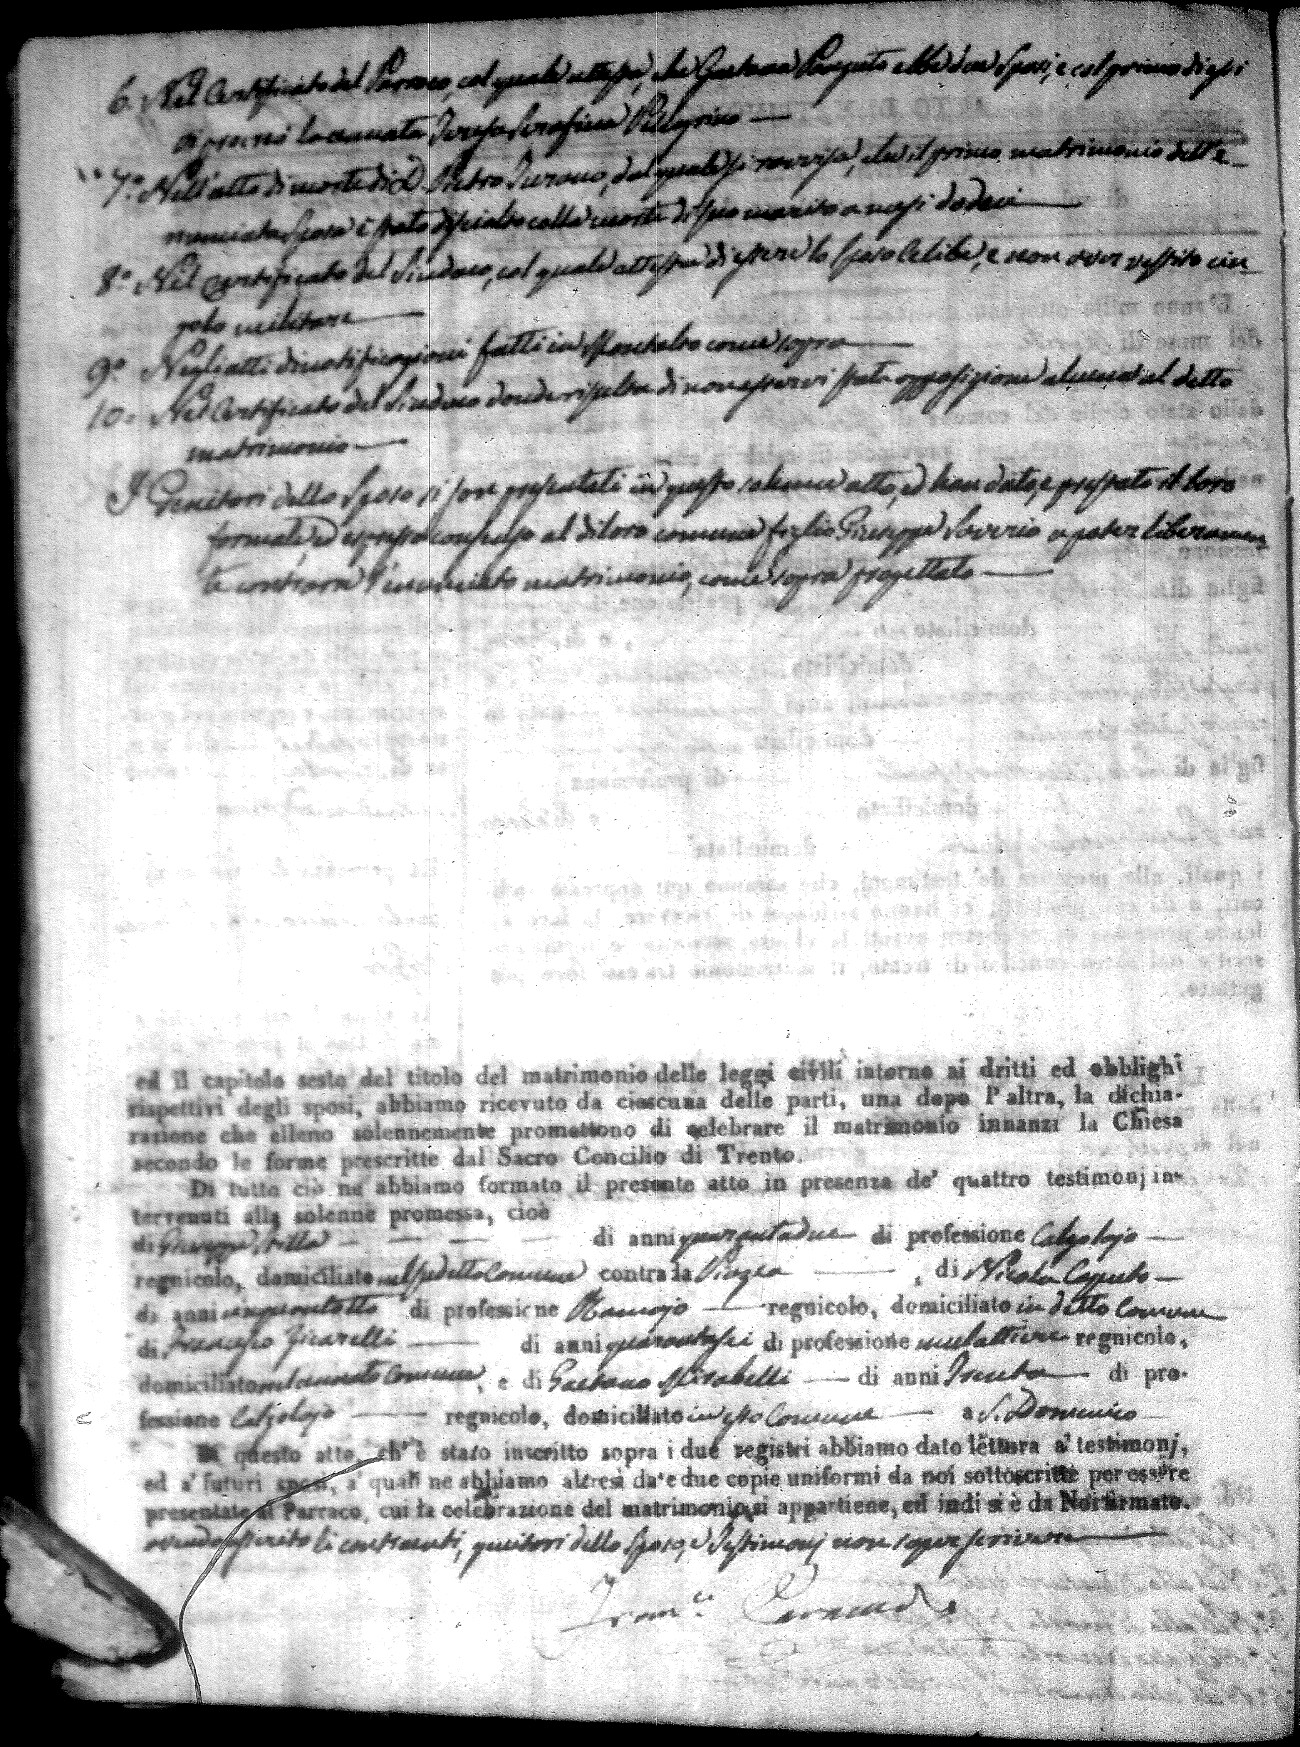 6. Nel Certificato del Parroco, col quale attesta, che Gaetana Perguto ebbe due Sposi, e col primo di essi
procreò la cennata Teresa Serafina Pelegrino
7.° Nell'atto di morte di D. Pietro Turano, dal quale si ravvisa, che il primo matrimonio dell'e-
nunciata Sposa è stato disciolto colla morte di suo marito a mesi dodeci
8.° Nel certificato del Sindaco, col quale attesta di essere lo Sposo Celibe, e non aver vestito cin-
golo militare
9.° Negli atti di notificazioni fatti in Montalto come sopra
10. Nel Certificato del Sindaco donde risulta di non esservi stata opposizione alcuna al detto
matrimonio
I Genitori dello Sposo si son presentati in questo solenne atto, ed han dato, e prestato il loro
formale, ed espresso consenso al di loro comune figlio Giuseppe Saverio a poter liberamen
te contrarre l'enunciato matrimonio, come sopra progettato
ed il capitolo sesto del titolo del matrimonio delle leggi civili intorno ai dritti ed obblighi
rispettivi degli sposi, abbiamo ricevuto da ciascuna delle parti, una dopo l'altra, la dichia-
razione che elleno solennemente promettono di celebrare il matrimonio innanzi la Chiesa
secondo le forme prescritte dal Sacro Concilio di Trento.
Di tutto ciò ne abbiamo formato il presente atto in presenza de' quattro testimonj in-
tervenuti alla solenne promessa, cioè
di Giuseppe di anni quarantadue di professione Calzolajo
regnicolo, domiciliato nel sudetto Comune contrada Piazza , di Nicola Caputo
di anni di professione regnicolo, domiciliato in detto Comune
di Francesco Ziccarelli di anni quarantasei di professione mulattiere regnicolo,
domiciliato nel cennato Comune, e di Gaetano Mirabelli di anni Trenta di pro-
fessione Calzolajo regnicolo, domiciliato in esso Comune a S. Domenico
Di questo atto, ch'è stato inscritto sopra i due registri abbiamo dato lettura a' testimonj,
ed a' futuri sposi, a' quali ne abbiamo altresì date due copie uniformi da noi sottoscritte per essere
presentate al Parroco, cui la celebrazione del matrimonio si appartiene, ed indi si è da Noi firmato.
avendo asserito li contraenti, genitori dello Sposo, e Testimonj non saper scrivere